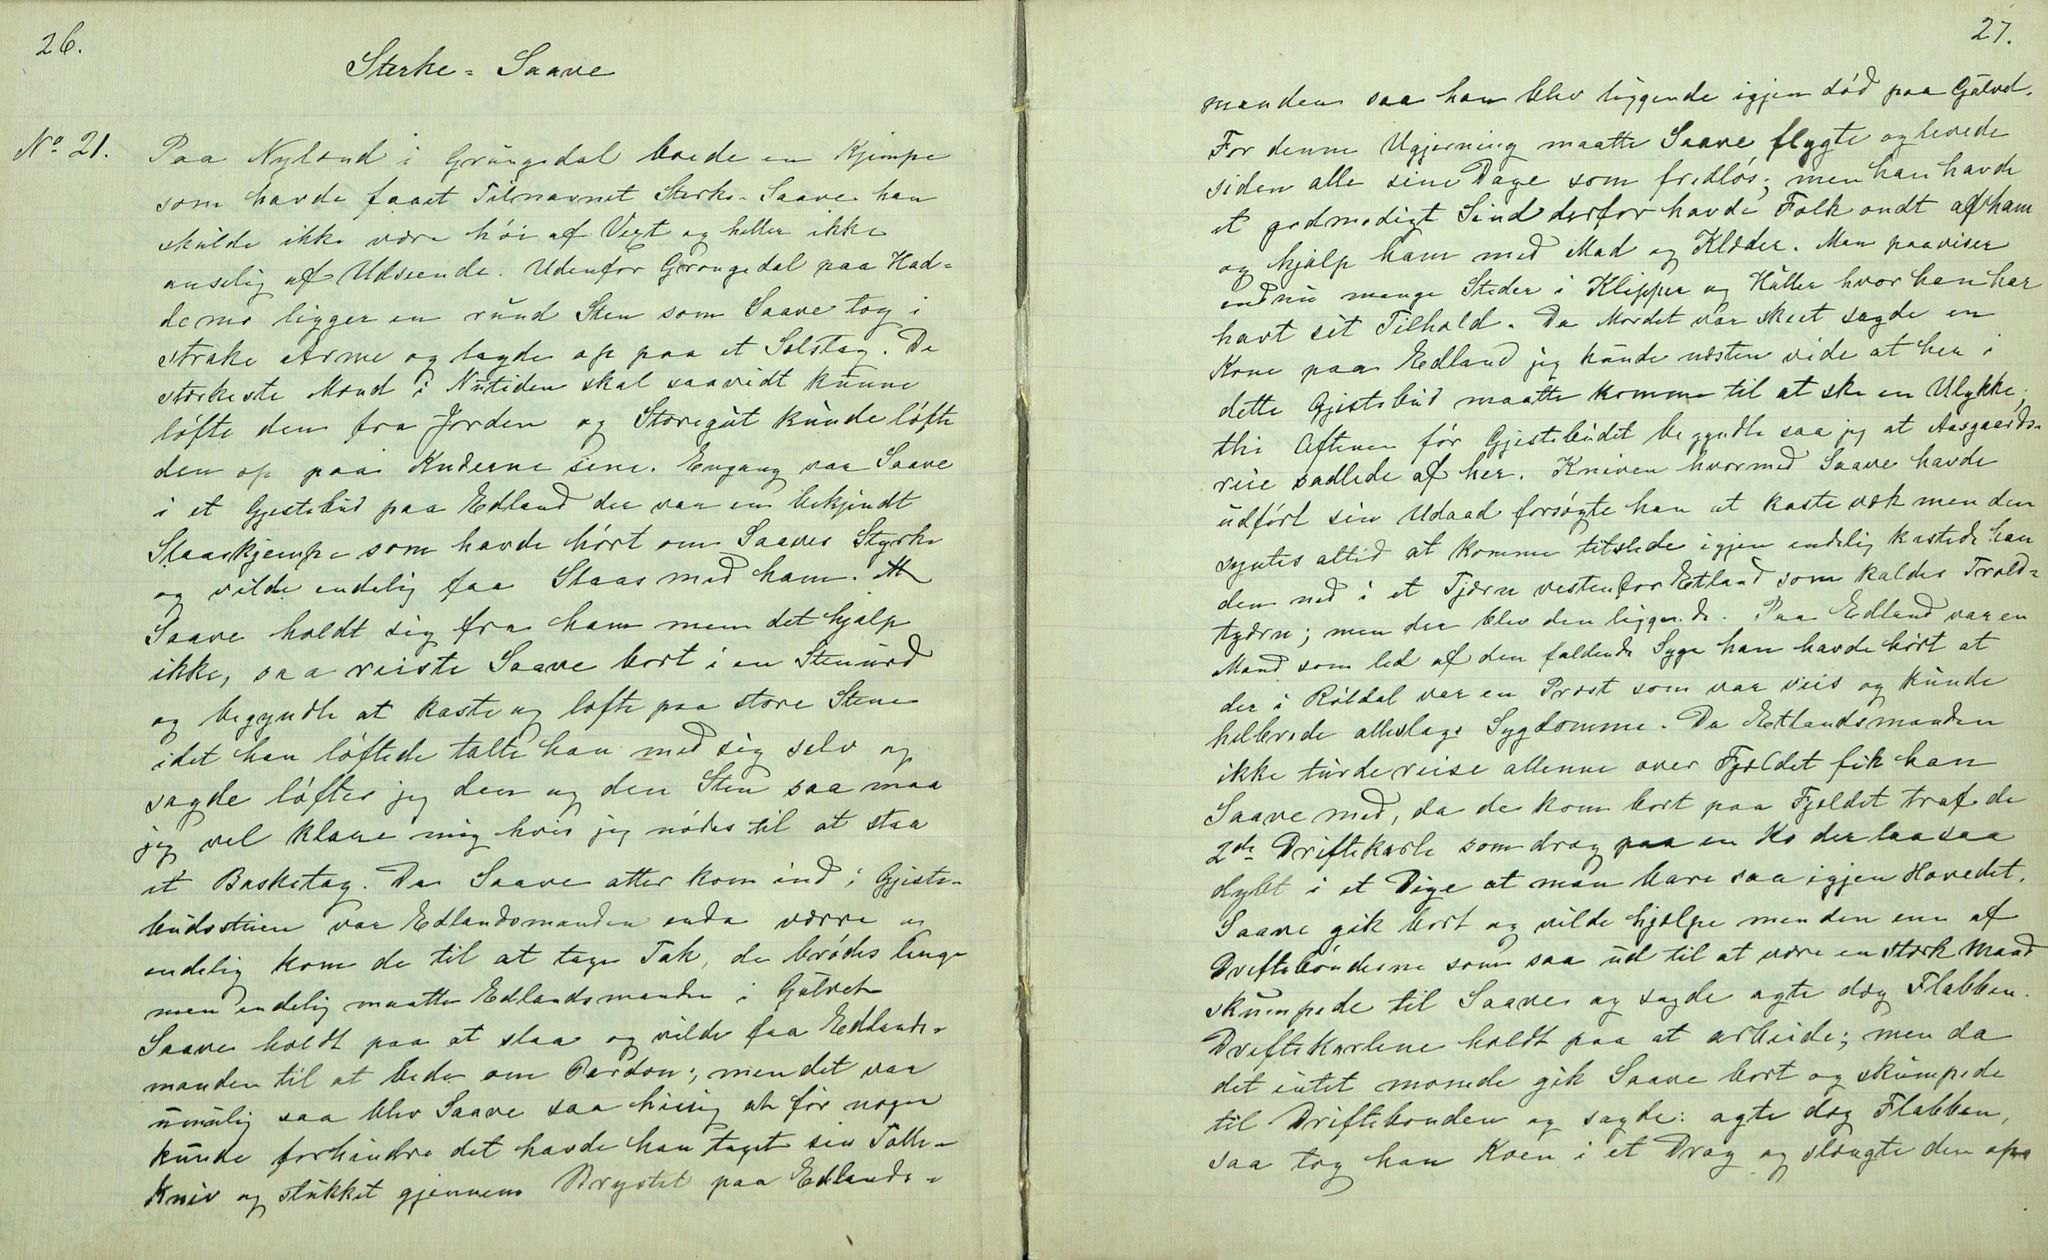 26.
Sterke-Saave
No 21. Paa Nyland i Grungedal boede en Kjempe
som havde faaet Tilnavnet Sterke-Saave han
skulde ikke være høi af Vext og heller ikke
anselig af Udseende. Udenfor Grungedal paa Had-
demo ligger en rund Sten som Saave tog i
strake Arme og lagde op paa et Solstag. De
stærkeste Mænd i Nutiden skal saavidt kunne
løfte den fra Jorden og Storegut kunde løfte
den op paa Knæerne sine. Engang var Saave
i et Gjestebud paa Edland der var en bekjendt
Slaaskjempe som havde hørt om Saaves Styrke
og vilde endelig faa Slaas med ham. M
Saave holdt sig fra ham men det hjalp
ikke, saa reiste Saave bort i en Stenurd
og begyndte at kaste og løfte paa store Stene
idet han løftede talte han med sig selv og
sagde løfter jeg den og den Sten saa maa
jeg vel klare mig hvis jeg nødes til at staa
et Basketag. Da Saave atter kom ind i Gjeste-
budsstuen var Edlandsmanden enda værre og
endelig kom de til at tage Tak, de brødes længe
men endelig maatte Edlandsmanden i Gulvet
Saave holdt paa at slaa og vilde faa Edlands-
manden til at bede om Pardon; men det var
umulig saa blev Saave saa hissig at før nogen
kunde forhindre det havde han taget sin Tolle-
Kniv og stukket gjennem Brystet paa Edlands-
27.
manden saa han blev liggende igjen død paa Gulvet.
For denne Ugjerning maatte Saave flygte og levede
siden alle sine Dage som fredløs; men han havde
et godmodigt Sind derfor havde Folk ondt af ham
og hjalp ham med Mad og Klæder. Man paaviser
endnu mange Steder i Klipper og Huller hvor han har
havt sit Tilhold. Da Mordet var skeet sagde en
Kone paa Edland jeg kunde næsten vide at her i
dette Gjestebud maatte komme til at ske en Ulykke;
thi Aftenen før Gjestebudet begyndte saa jeg at Aasgaards-
reie sadlede af her. Kniven hvormed Saave havde
udført sin Udaad forsøgte han at kaste væk men den
syntes altid at komme tilstede igjen endelig kastede han
den ned i et Tjærn vestenfor Edland som kaldes Trold-
tjærn; men der blev den liggende. Paa Edland var en
Mand som led af den faldende Syge han havde hørt at
der i Røldal var en Præst som var viis og kunde
helbrede alleslags Sygdomme. Da Edlandsmanden
ikke turde reise allenne over Fjeldet fik han
Saave med, da de kom bort paa Fjeldet traf de
2de Driftekarle som drog paa en Ko der laa saa
dybt i et Dige at man bare saa igjen Hovedet.
Saave gik bort og vilde hjælpe men den ene af
Driftebønderne som saa ud til at være en stærk Mand
skumpede til Saave og sagde agte dæg Flabben.
Driftekarlene holdt paa at arbeide; men da
det intet monede gik Saave bort og skumpede
til Driftebonden og sagde: agte dæg Flabben,
saa tog han Koen i et Drag og slængte den op